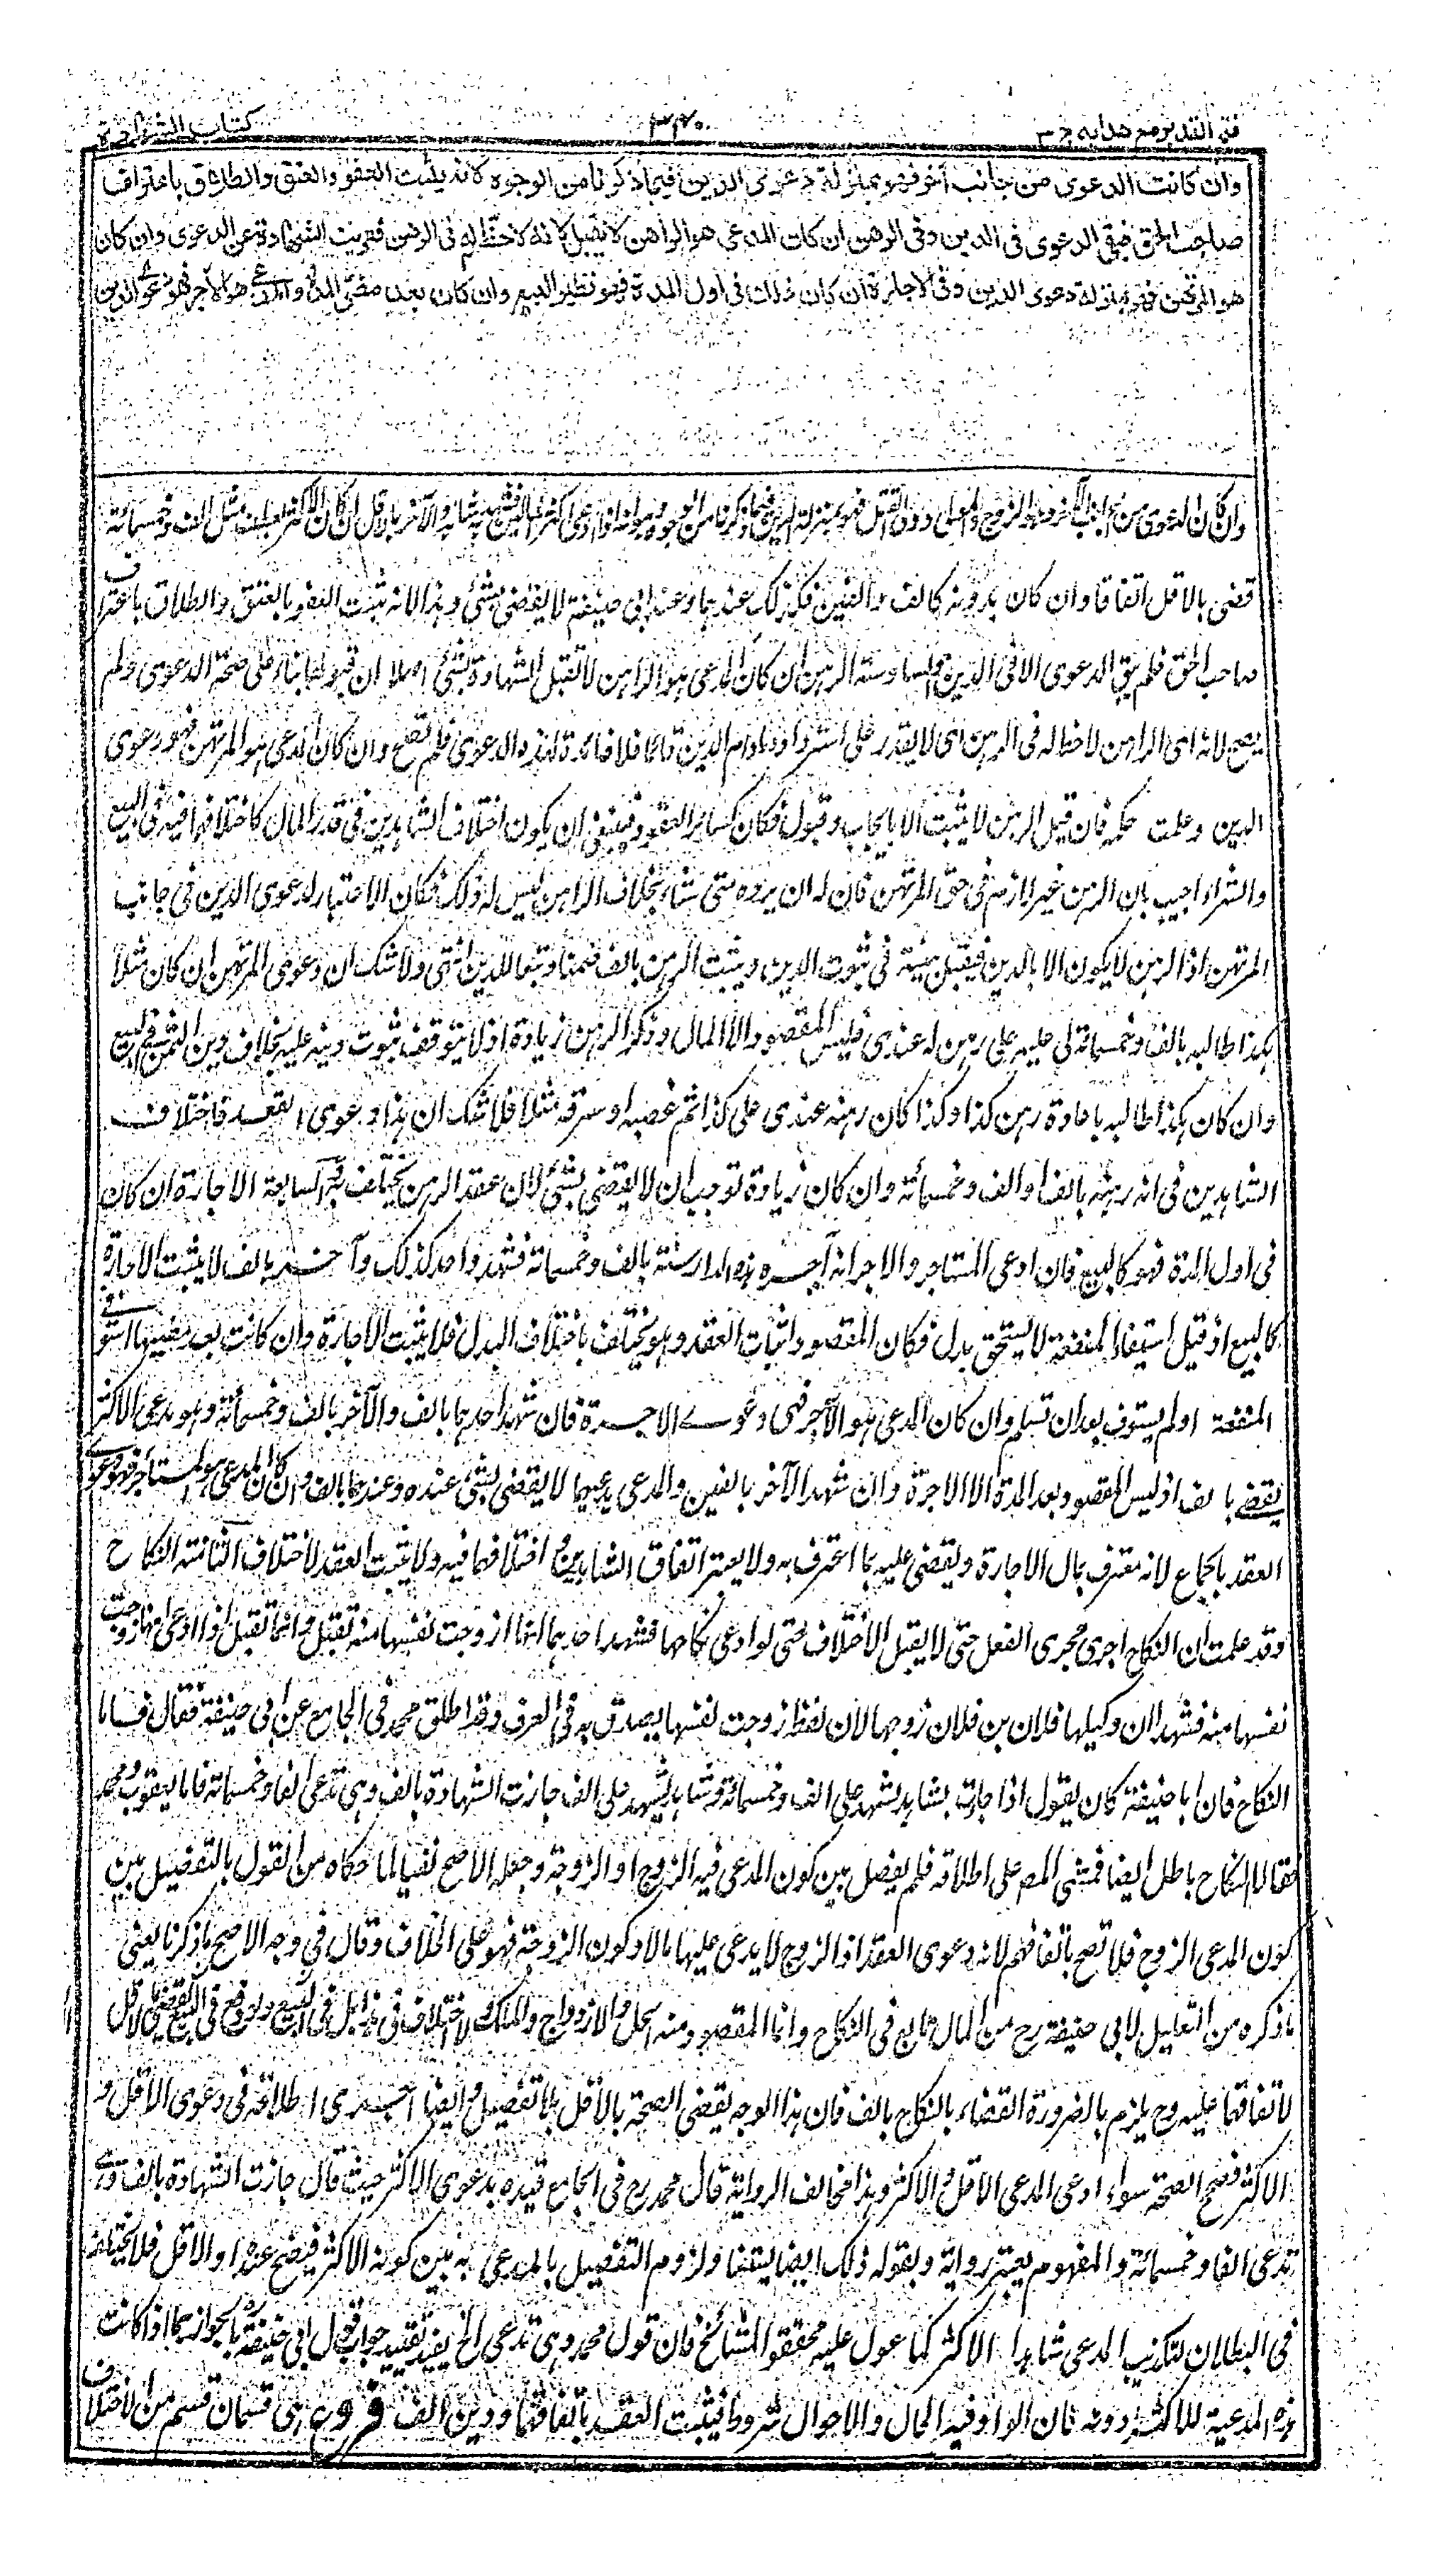 فتح القدير مع هدايه ج ٣
٣٢٠
كتاب الشهادة
وان كانت الدعوى من جانب آخر فهو بمنزلة دعوى الدين فيما ذكرنا من الوجوه لانه يثبت العفو والعتق والطلاق باعتراف
صاحب الحق فبقى الدعوى فى الدين وفى الرهن ان كان المدعى هو الراهن لا يقبل لانه لا حظ له فى الرهن فعريت الشهادة عن الدعوى وان كان
هو المرتهن فهو بمنزلة دعوى الدين وفى الاجارة ان كان ذلك فى اول المدة فهو نظير البيع وان كان بعد مضى المدة والمدعى هو الآجر فهو دعوى الدين
وان كان الدعوى من جانب الآخر وهو الزوج والمولى وولى القتيل فهو بمنزلة الدين فيما ذكرنا من الوجوه وهو انه اذا ادعى اكثر المالين فشهد به شاهد والآخر بالاقل ان كان الاكثر بعطف مثل الف وخمسمائة
قضى بالاقل اتفاقا وان كان بدونه كالف والفين فكذلك عندهما وعند ابى حنيفة لا يقضى بشئ وهذا لانه يثبت العفو والعتق والطلاق باعتراف
صاحب الحق فلم يبق الدعوى الا فى الدين والسادسة الرهن ان كان المدعى هو الراهن لا تقبل الشهادة بشئ اصلا ان قبولها بناء على صحة الدعوى ولم
يصح لانه اى الراهن لا حظ له فى الرهن اى لا يقدر على استرداده ما دام الدين قائما فلا فائدة لهذه الدعوى فلم تصح وان كان المدعى هو المرتهن فهو دعوى
الدين وعلمت حكمه فان قيل الرهن لا يثبت الا بايجاب وقبول فكان كسائر العقود فينبغى ان يكون اختلاف الشاهدين فى قدر المال كاختلافهما فيه فى البيع
والشراء اجيب بان الرهن غير لازم فى حق المرتهن فان له ان يرده متى شاء بخلاف الراهن ليس له ذلك فكان الاعتبار لدعوى الدين فى جانب
المرتهن اذ الرهن لا يكون الا بالدين فيقبل بينته فى ثبوت الدين ويثبت الرهن بالف ضمنا وتبعا للدين انتهى ولا شك ان دعوى المرتهن ان كان مثلا
هكذا طالبه بالف وخمسمائة لى عليه على رهن له عندى فليس المقصود الا المال وذكر الرهن زيادة اذ لا يتوقف ثبوت دينه عليه بخلاف دين الثمن فى البيع
وان كان هكذا طالبه باعادة رهن كذا وكذا كان رهنه عندى على كذا ثم غصبه او سرقه مثلا فلا شك ان هذا دعوى العقد فاختلاف
الشاهدين فى انه رهنه بالف او الف وخمسمائة وان كان زيادة توجب ان لا يقضى بشئ لان عقد الرهن يختلف به السابعة الاجارة ان كان
فى اول المدة فهو كالبيع فان ادعى المستاجر والاجر انه آجره هذه الدار سنة بالف وخمسمائة فشهد واحد كذلك وآخر بالف لا يثبت الاجارة
كالبيع اذ قبل استيفاء المنفعة لا يستحق بدل فكان المقصود اثبات العقد وهو يختلف باختلاف البدل فلا يثبت الاجارة وان كانت بعد مضيها استوفى
المنفعة او لم يستوف بعد ان تسلم وان كان المدعى هو الآجر فهى دعوى الاجرة فان شهد احدهما بالف والآخر بالف وخمسمائة وهو يدعى الاكثر
يقضى بالف اذ ليس المقصود بعد المدة الا الاجرة وان شهد الآخر بالفين والمدعى يدعيهما لا يقضى بشئ عنده وعندهما بالف وان كان المدعى هو المستاجر فهو دعوى
العقد باجماع لانه معترف بمال الاجارة ويقضى عليه بما اعترف به ولا يعتبر اتفاق الشاهدين او اختلافهما فيه ولا يثبت العقد لاختلاف الثامنة النكاح
وقد علمت ان النكاح اجرى مجرى الفعل حتى لا يقبل الاختلاف حتى لو ادعى نكاحها فشهد احدهما انها زوجت نفسها منه تقبل وانما تقبل اذا ادعى انها زوجت
نفسها منه فشهدا ان وكيلها فلان بن فلان زوجها لان لفظ زوجت نفسها يصدق به فى العرف وقد اطلق محمد فى الجامع عن ابى حنيفة فقال فاما
النكاح فان ابا حنيفة كان يقول اذا جاءت بشاهد يشهد على الف وخمسمائة وشاهد يشهد على الف جازت الشهادة بالف وهى تدعى الفا وخمسمائة فاما يعقوب ومحمد
فقالا النكاح باطل ايضا فمشى المصنف على اطلاقه فلم يفصل بين كون المدعى فيه الزوج او الزوجة وجعله الاصح نفيا لما حكاه من القول بالتفصيل بين
كون المدعى الزوج فلا تصح باتفاقهم لانه دعوى العقد اذ الزوج لا يدعى عليها مالا وكون الزوجة فهو على الخلاف وقال فى وجه الاصح ما ذكرنا يعنى
ما ذكره من التعليل لابى حنيفة رح من المال تابع فى النكاح وانما المقصود منه الحل والازدواج والملك ولا اختلاف فى هذا بل فى التبع ولو وقع فى التبع يقضى بالاقل
لاتفاقهما عليه وح يلزم بالضرورة القضاء بالنكاح بالف فان هذا الوجه يقضى الصحة بالاقل بلا تفصيل وايضا اجرى اطلاقه فى دعوى الاقل و
الاكثر فصح الصحة سواء ادعى المدعى الاقل والاكثر وهذا مخالف الرواية قال محمد رح فى الجامع قيده بدعوى الاكثر حيث قال جازت الشهادة بالف وهى
تدعى الفا وخمسمائة والمفهوم يعتبر رواية وبقوله ذلك ايضا يستفاد لزوم التفصيل بالمدعى به بين كونه الاكثر فيصح عنده او الاقل فلا يختلف
فى البطلان لتكذيب المدعى شاهد الاكثر كما عول عليه محققو المشائخ فان قول محمد وهى تدعى الخ يفيد تقييد جواب قول ابى حنيفة رح بالجواز بما اذا كانت
هذه المدعية للاكثر دونه فان الواو فيه للحال والاحوال شروط فيثبت العقد باتفاقهما ودين الف فروع هى قسمان قسم من الاختلاف